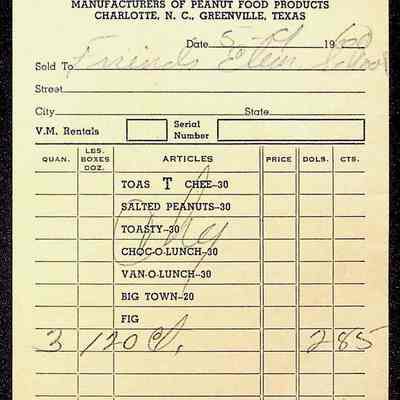 MANUFACTURERS OF PEANUT FOOD PRODUCTS
CHARLOTTE, N. C., GREENVILLE, TEXAS
Date 5- 19 1960
Sold To Friends Elem School
Street
City State
V.M. Rentals Serial Number
QUAN. LBS. BOXES DOZ. ARTICLES PRICE DOLS. CTS.
TOAS T CHEE-30
SALTED PEANUTS-30
TOASTY-30
CHOC-O-LUNCH-30
VAN-O-LUNCH-30
BIG TOWN-20
FIG
3 120 2 85